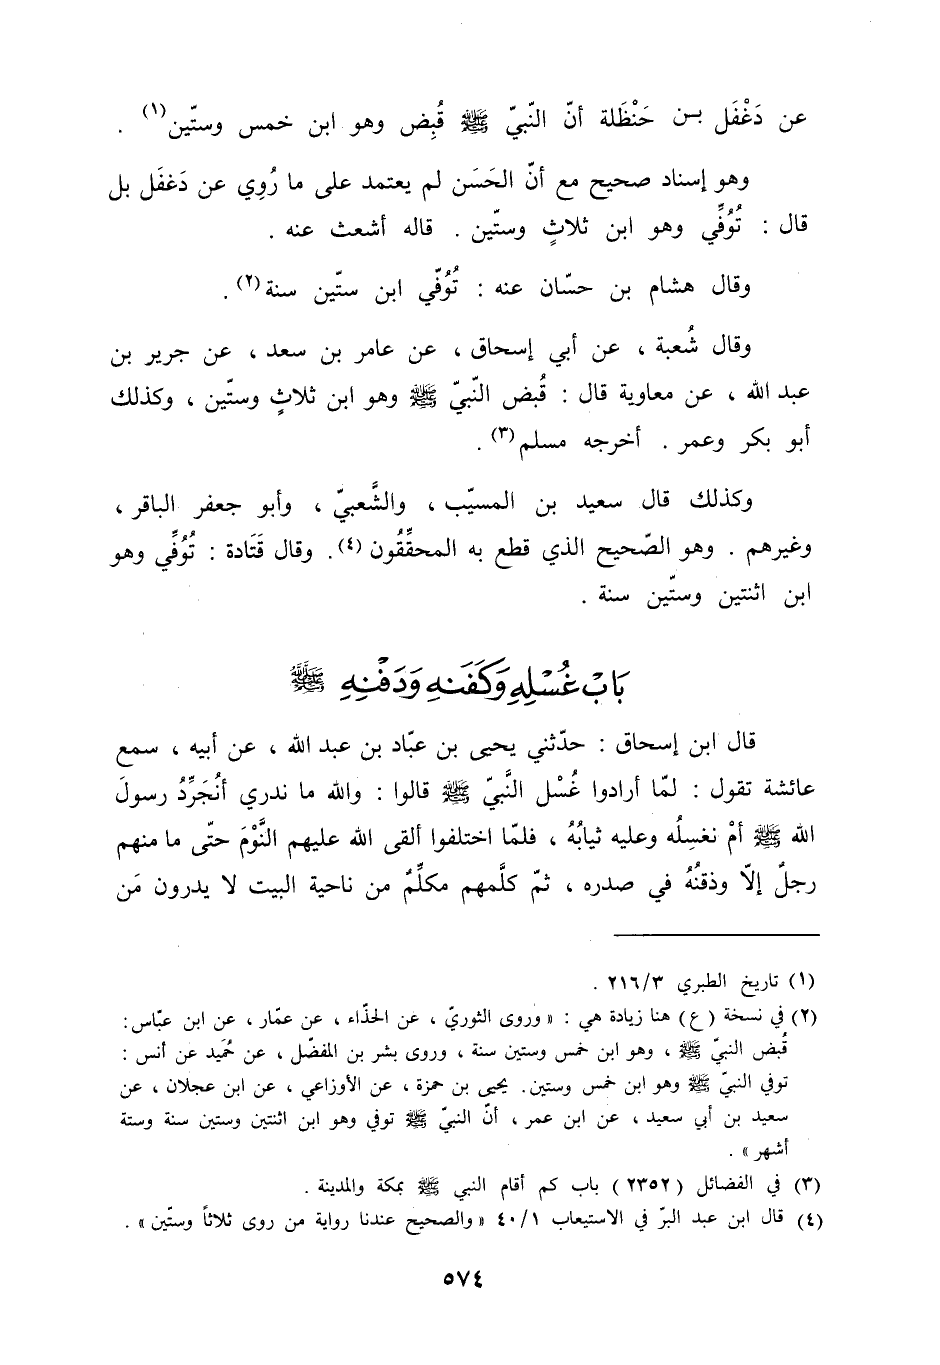 عن دَغْفَل بـن حَنْظَلة أنّ النّبيّ ﷺ قُبِض وهو ابن خمس وستّين(١) .
وهو إسناد صحيح مع أنّ الحَسَن لم يعتمد على ما رُوِي عن دَغفَل بل
قال : تُوُفِّي وهو ابن ثلاثٍ وستّين . قاله أشعث عنه .
وقال هشام بن حسّان عنه : تُوُفّي ابن ستّين سنة(٢) .
وقال شُعبة ، عن أبي إسحاق ، عن عامر بن سعد ، عن جرير بن
عبد الله ، عن معاوية قال : قُبض النّبيّ ﷺ وهو ابن ثلاثٍ وستّين ، وكذلك
أبو بكر وعمر . أخرجه مسلم(٣) .
وكذلك قال سعيد بن المسيّب ، والشَّعبيّ ، وأبو جعفر الباقر ،
وغيرهم . وهو الصّحيح الذي قطع به المحقِّقُون(٤) . وقال قَتَادة : تُوُفِّي وهو
ابن اثنتين وستّين سنة .
بَابُ غُسْلِهِ وَكَفَنِهِ وَدَفْنِهِ ﷺ
قال ابن إسحاق : حدّثني يحيى بن عبّاد بن عبد الله ، عن أبيه ، سمع
عائشة تقول : لمّا أرادوا غُسْل النَّبيّ ﷺ قالوا : والله ما ندري أنُجَرِّدُ رسولَ
الله ﷺ أمْ نغسِلُه وعليه ثيابُهُ ، فلمّا اختلفوا ألقى الله عليهم النَّوْمَ حتّى ما منهم
رجلٌ إلّا وذقنُهُ في صدره ، ثمّ كلَّمهم مكلِّمٌ من ناحية البيت لا يدرون مَن
(١) تاريخ الطبري ٢١٦/٣ .
(٢) في نسخة (ع) هنا زيادة هي : « وروى الثوريّ ، عن الحذّاء ، عن عمّار ، عن ابن عبّاس :
قُبض النبيّ ﷺ ، وهو ابن خمس وستين سنة ، وروى بشر بن المفضّل ، عن حُميد عن أنس :
توفي النبيّ ﷺ وهو ابن خمس وستين. يحيى بن حمزة ، عن الأوزاعي ، عن ابن عجلان ، عن
سعيد بن أبي سعيد ، عن ابن عمر ، أنّ النبيّ ﷺ توفي وهو ابن اثنتين وستين سنة وستة
أشهر » .
(٣) في الفضائل (٢٣٥٢) باب كم أقام النبي ﷺ بمكة والمدينة .
(٤) قال ابن عبد البرّ في الاستيعاب ٤٠/١ « والصحيح عندنا رواية من روى ثلاثاً وستّين » .
٥٧٤